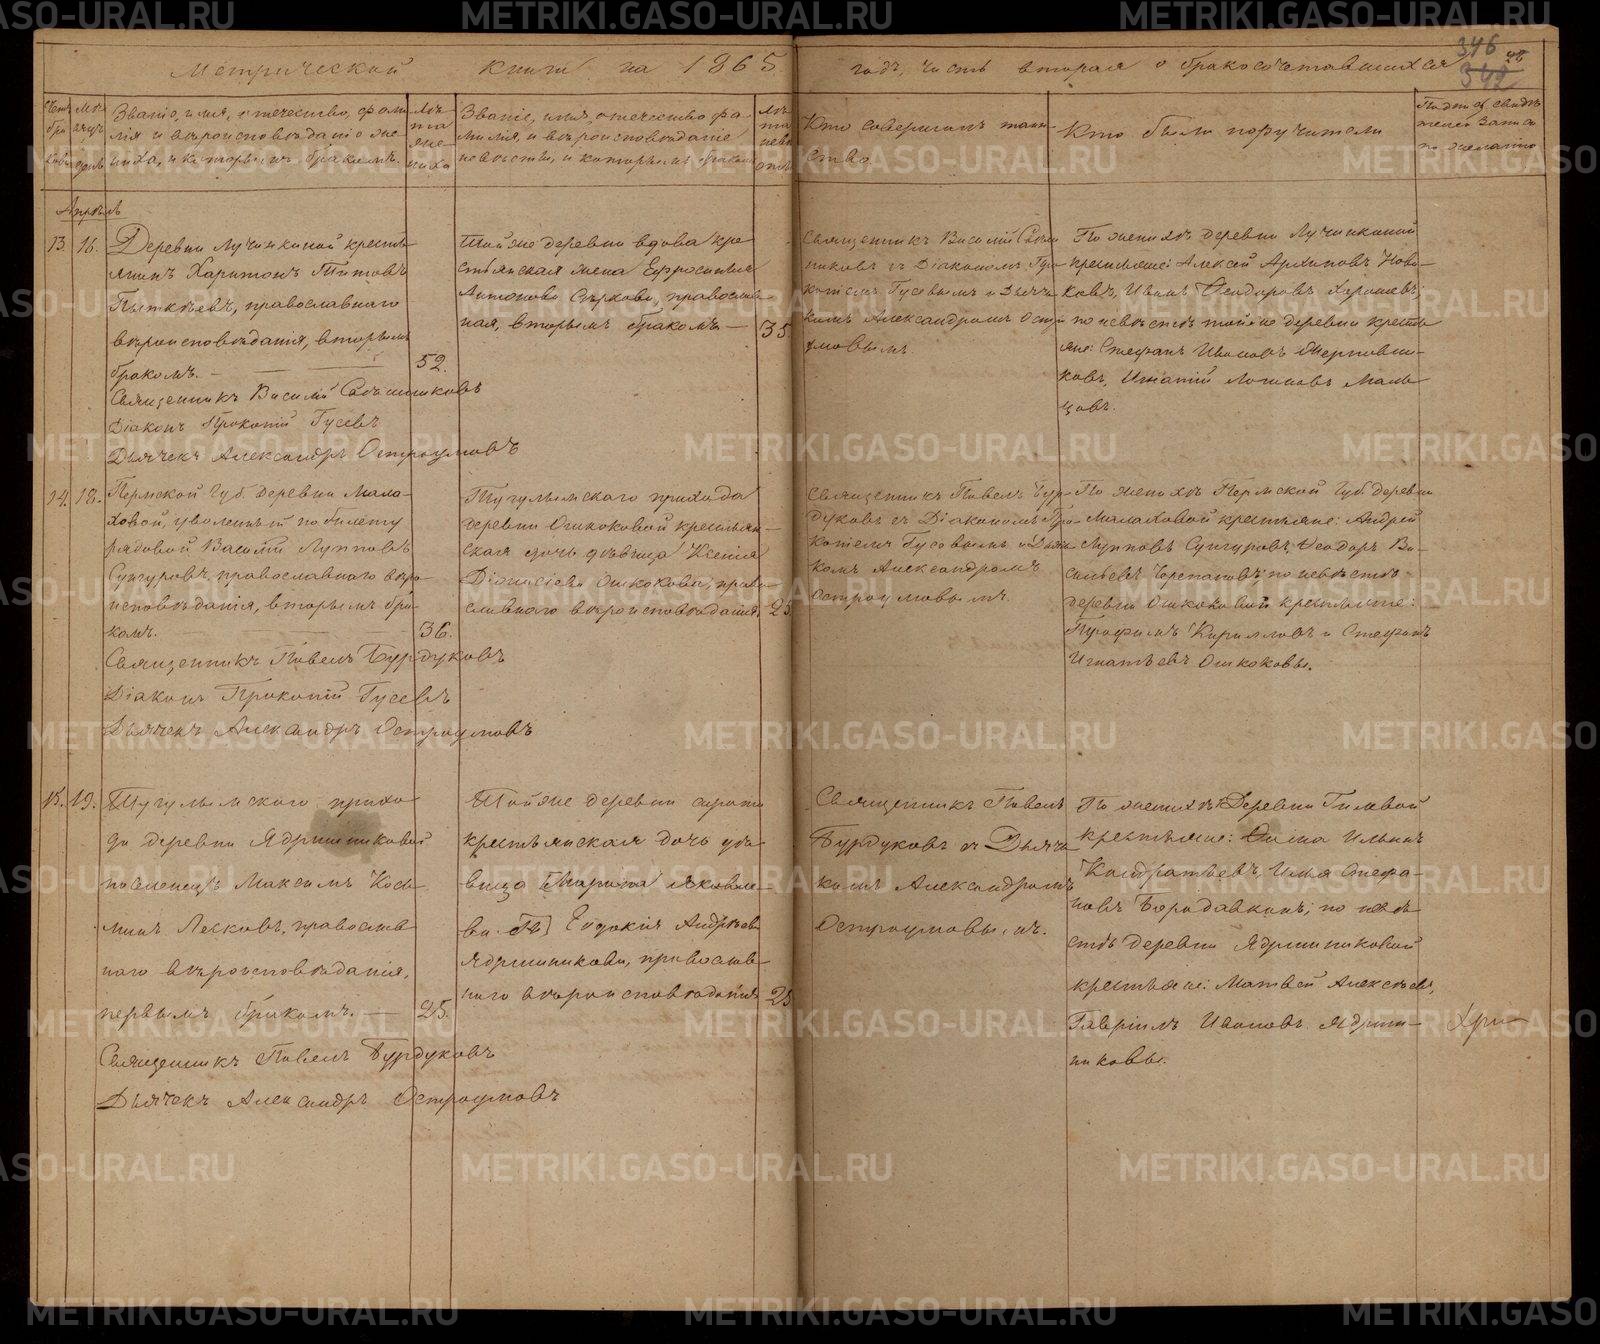 Метрической книги на 1865
годъ, часть вторая о бракосочетавшихся
346
342
Званіе, имя, отечество, фами-
лія и вѣроисповѣданіе же-
ниха, и которымъ бракомъ.
Лѣ-
та
же-
ниха
Званіе, имя, отечество, фа-
милія, и вѣроисповѣданіе
невѣсты, и которымъ бракомъ
Лѣ-
та
невѣ-
Кто совершилъ таин-
ство
Кто были поручители
Апрѣль
13. 16.
Деревни Лучинкиной кресть-
янинъ Харитонъ Титовъ
Пыткѣевъ, православнаго
вѣроисповѣданія, вторымъ
бракомъ. — 52.
Священникъ Василій
Діаконъ Прокопій Гусевъ
Дьячекъ Александръ Остроумовъ
Той же деревни вдова кре-
стьянская жена Ефросинія
Антонова Сѣркова, православ-
ная, вторымъ бракомъ — 35.
Священникъ Василій
никовъ съ Діакономъ Про-
копіемъ Гусевымъ и Дьяч-
комъ Александромъ Остро-
умовымъ.
По женихѣ деревни Лучинкиной
крестьяне: Алексѣй Архиповъ Ново-
ковъ, Иванъ Ѳеодоровъ Хорошевъ;
по невѣстѣ той же деревни кресть-
яне: Стефанъ Ивановъ Жерновни-
ковъ, Игнатій Логиновъ Маль-
цовъ.
14. 18.
Пермской Губ. деревни Мала-
ховой, уволенный по билету
рядовой Василій Лупповъ
Сунгуровъ, православнаго вѣро-
исповѣданія, вторымъ бра-
комъ. — 36.
Священникъ Павелъ Бурдуковъ
Діаконъ Прокопій Гусевъ
Дьячекъ Александръ Остроумовъ
Тугулымскаго прихода
деревни Ошкоковой крестьян-
ская дочь дѣвица Ксенія
Діонисіева Ошкокова, право-
славнаго вѣроисповѣданія, 25
Священникъ Павелъ Бур-
дуковъ съ Діакономъ Про-
копіемъ Гусевымъ и Дьяч-
комъ Александромъ
Остроумовымъ.
По женихѣ Пермской Губ. деревни
Малаховой крестьяне: Андрей
Лупповъ Сунгуровъ, Ѳеодоръ Ва-
сильевъ Черепановъ; по невѣстѣ
деревни Ошкоковой крестьяне:
Трофимъ Кирилловъ и Стефанъ
Игнатьевъ Ошкоковы.
15. 19.
Тугулымскаго прихо-
да деревни Ядрышниковой
поселенецъ Максимъ Кось-
минъ Лесковъ, православ-
наго вѣроисповѣданія,
первымъ бракомъ. — 25.
Священникъ Павелъ Бурдуковъ
Дьячекъ Александръ Остроумовъ
Той же деревни сирота
крестьянская дочь дѣ-
вица Яковле-
ва Евдокія Андрѣева
Ядрышникова, православ-
наго вѣроисповѣданія 25
Священникъ Павелъ
Бурдуковъ съ Дьяч-
комъ Александромъ
Остроумовымъ.
По женихѣ: Деревни Гилевой
крестьяне: Ѳома Ильинъ
Кондратьевъ, Илья Стефа-
новъ Бородавкинъ; по невѣ-
стѣ деревни Ядрышниковой
крестьяне: Матвей Алексѣевъ,
Гавріилъ Ивановъ Ядрыш-
никовы.
METRIKI.GASO-URAL.RU